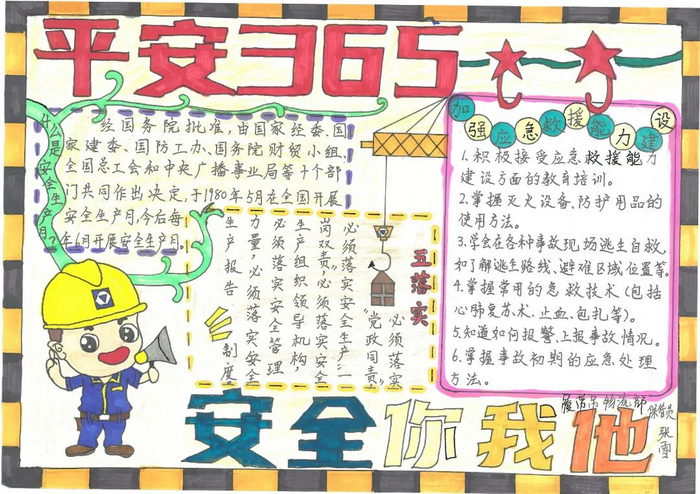 平安365
什么是安全生产月?
经国务院批准,由国家经委、国
家建委、国防工办、国务院财贸小组、
全国总工会和中央广播事业局等十个部
门共同作出决定,于1980年5月在全国开展
安全生产月,今后每
年6月开展安全生产月。
五落实
必须落实
“党政同责”
必须落实安全生产“一
岗双责”,必须落实安全
生产组织领导机构,
必须落实安全管理
力量,必须落实安全
生产报告制度
加强应急救援能力建设
1.积极接受应急救援能力
建设方面的教育培训。
2.掌握灭火设备、防护用品的
使用方法。
3.学会在各种事故现场逃生自救,
和了解逃生路线、避难区域位置等。
4.掌握常用的急救技术(包括
心肺复苏术、止血、包扎等)。
5.知道如何报警、上报事故情况。
6.掌握事故初期的应急处理
方法。
物流部
保管员
张
安全你我他